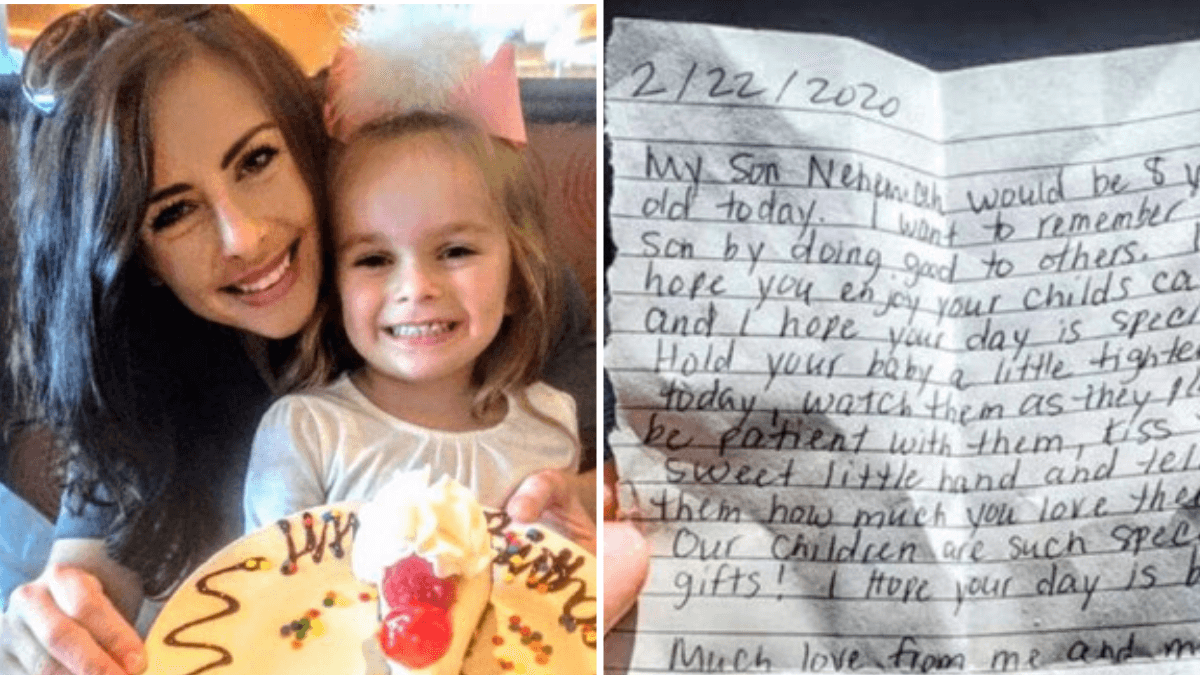 2/22/2020
My Son Nehemiah would be 8 y
old today. I want to remember
son by doing good to others. I
hope you enjoy your childs ca
and I hope your day is spec
Hold your baby a little tighte
today, watch them as they pl
be patient with them, kiss
sweet little hand and tel
them how much you love the
Our children are such spec
gifts! I Hope your day is b
Much love from me and m